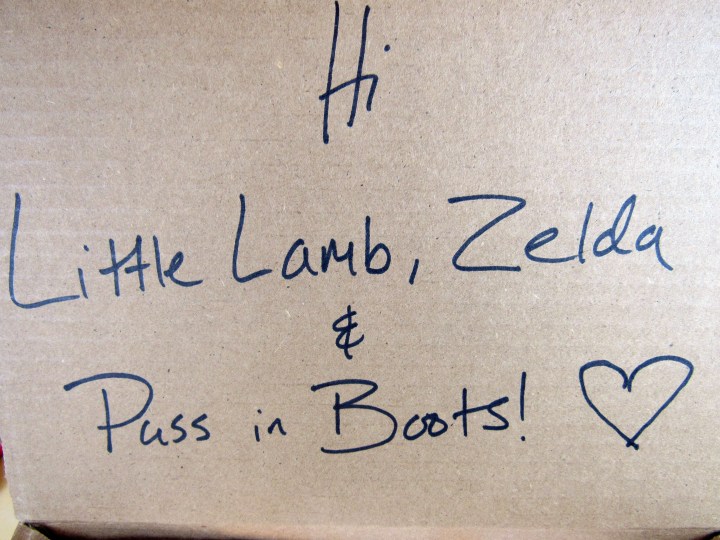 Hi
Little Lamb, Zelda
&
Puss in Boots! ♡